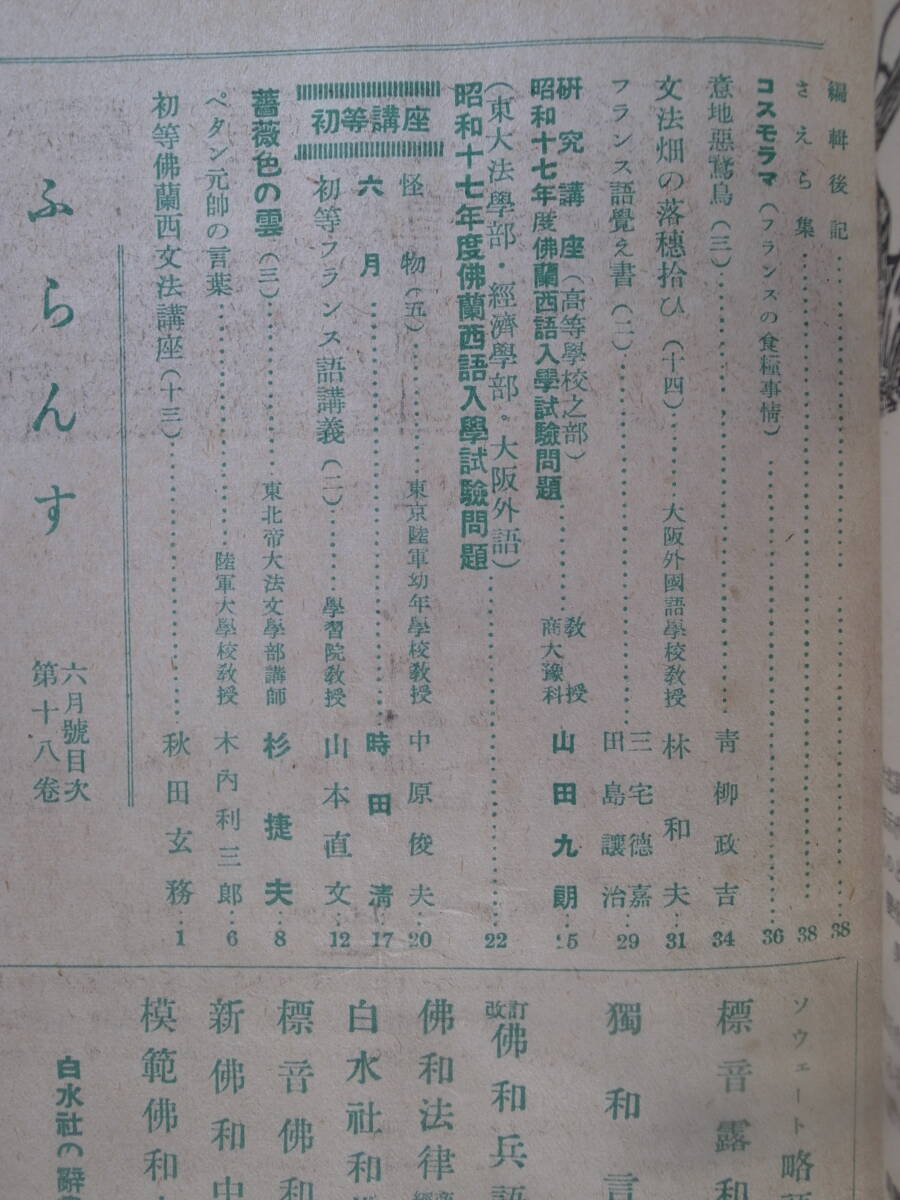 ふらんす
六月號目次
第十八卷
初等佛蘭西文法講座(十三)……秋田玄務…1
ペタン元帥の言葉……陸軍大學校教授 木內利三郎…6
薔薇色の雲(三)……東北帝大法文學部講師 杉捷夫…8
初等講座
初等フランス語講義(二)……學習院教授 山本直文…12
六月……時田清…17
怪物(五)……東京陸軍幼年學校教授 中原俊夫…20
昭和十七年度佛蘭西語入學試驗問題
(東大法學部・經濟學部・大阪外語)……22
昭和十七年度佛蘭西語入學試驗問題……商大豫科教授 山田九朗…25
硏究講座(高等學校之部)
フランス語覺え書(二)……三宅德嘉 田島讓治…29
文法畑の落穗拾ひ(十四)……大阪外國語學校教授 林和夫…31
意地惡鵞鳥(三)……靑柳政吉…34
コスモラマ(フランスの食糧事情)……36
さえら集……38
編輯後記……38
白水社の辭
模範佛和
新佛和中
標音佛和
白水社和
佛和法律
改訂佛和兵語
獨和言
標音露和
ソウェート略語